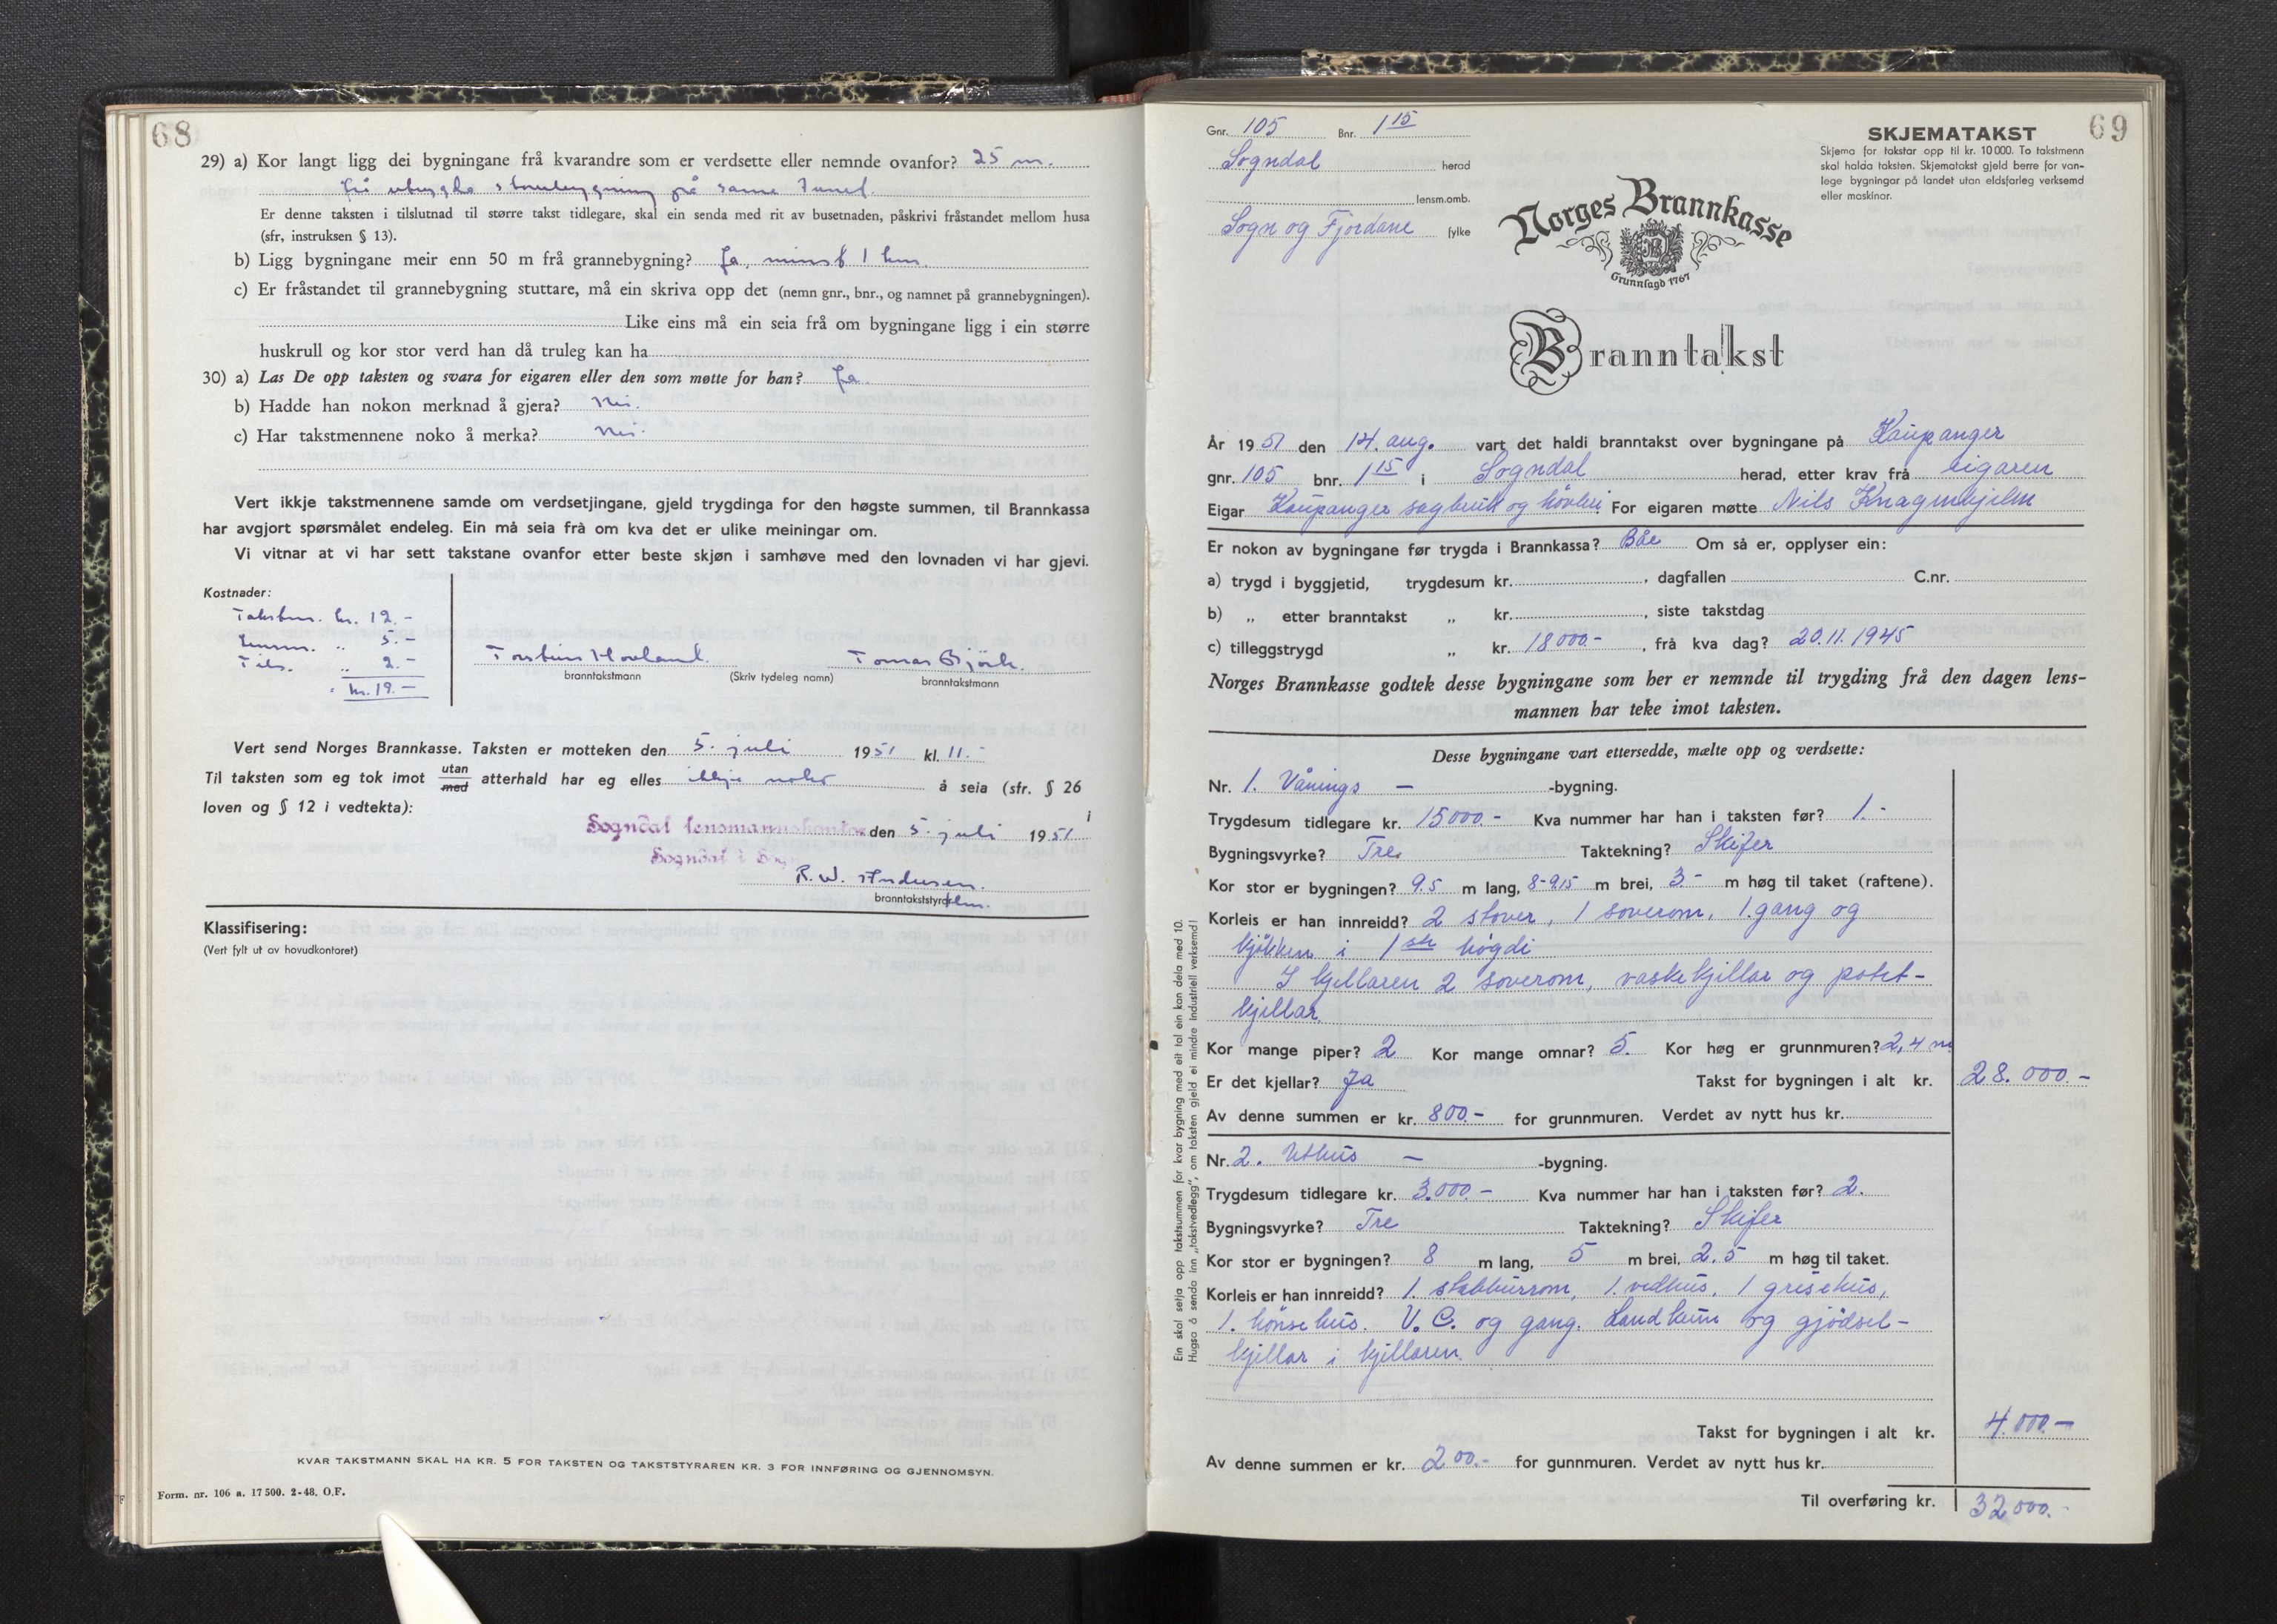 68
29) a) Kor langt ligg dei bygningane frå kvarandre som er verdsette eller nemnde ovanfor? 25 m.
på same tunet.
Er denne taksten i tilslutnad til større takst tidlegare, skal ein senda med rit av busetnaden, påskrivi fråstandet mellom husa
(sfr, instruksen § 13).
b) Ligg bygningane meir enn 50 m frå grannebygning? Ja, minst 1 km.
c) Er fråstandet til grannebygning stuttare, må ein skriva opp det (nemn gnr., bnr., og namnet på grannebygningen).
Like eins må ein seia frå om bygningane ligg i ein større
huskrull og kor stor verd han då truleg kan ha
30) a) Las De opp taksten og svara for eigaren eller den som møtte for han? Ja.
b) Hadde han nokon merknad å gjera? Nei.
c) Har takstmennene noko å merka? Nei.
Vert ikkje takstmennene samde om verdsetjingane, gjeld trygdinga for den høgste summen, til Brannkassa
har avgjort spørsmålet endeleg. Ein må seia frå om kva det er ulike meiningar om.
Vi vitnar at vi har sett takstane ovanfor etter beste skjøn i samhøve med den lovnaden vi har gjevi.
Kostnader:
Takstm. kr. 12.-
Lensm. " 5.-
" 2.-
kr. 19.-
Torstein Hovland. Tomas Bjørk.
branntakstmann (Skriv tydeleg namn) branntakstmann
Vert send Norges Brannkasse. Taksten er motteken den 5. juli 1951 kl. 11.-
Til taksten som eg tok imot utan/med atterhald har eg elles ikkje noko å seia (sfr. § 26 i
loven og § 12 i vedtekta):
Sogndal lensmannskontor den 5. juli 1951.
Sogndal i Sogn
R. W. Andersen.
branntakststyrar
Klassifisering:
(Vert fylt ut av hovudkontoret)
KVAR TAKSTMANN SKAL HA KR. 5 FOR TAKSTEN OG TAKSTSTYRAREN KR. 3 FOR INNFØRING OG GJENNOMSYN.
Form. nr. 106 a. 17 500. 2-48. O.F.
69
Gnr. 105 Bnr. 1 15
Sogndal herad
lensm.omb.
Sogn og Fjordane fylke
SKJEMATAKST
Skjema for takstar opp til kr. 10 000. To takstmenn
skal halda taksten. Skjematakst gjeld berre for van-
lege bygningar på landet utan eldsfarleg verksemd
eller maskinar.
Norges Brannkasse
Grunnlagd 1767
Branntakst
År 1951 den 14. aug. vart det haldi branntakst over bygningane på Kaupanger
gnr. 105 bnr. 1 15 i Sogndal herad, etter krav frå eigaren
Eigar Kaupanger sagbruk og høvleri For eigaren møtte Nils Knagenhjelm
Er nokon av bygningane før trygda i Brannkassa? Båe Om så er, opplyser ein:
a) trygd i byggjetid, trygdesum kr. , dagfallen C.nr.
b) „ etter branntakst „ kr. , siste takstdag
c) tilleggstrygd „ kr. 18000.- , frå kva dag? 20.11.1945
Norges Brannkasse godtek desse bygningane som her er nemnde til trygding frå den dagen lens-
mannen har teke imot taksten.
Desse bygningane vart ettersedde, mælte opp og verdsette:
Nr. 1. Vånings — -bygning.
Trygdesum tidlegare kr. 15000.- Kva nummer har han i taksten før? 1.-
Bygningsvyrke? Tre. Taktekning? Skifer
Kor stor er bygningen? 9.5 m lang, 8-9.15 m brei, 3.- m høg til taket (raftene).
Korleis er han innreidd? 2 stover, 1 soverom, 1. gang og
kjøkken i 1ste høgdi
I kjellaren 2 soverom, vaskekjellar og potet-
kjellar.
Kor mange piper? 2 Kor mange omnar? 5. Kor høg er grunnmuren? 2,4 m
Er det kjellar? Ja Takst for bygningen i alt kr. 28.000.-
Av denne summen er kr. 800.- for grunnmuren. Verdet av nytt hus kr.
Nr. 2. Uthus — -bygning.
Trygdesum tidlegare kr. 3.000.- Kva nummer har han i taksten før? 2.
Bygningsvyrke? Tre Taktekning? Skifer
Kor stor er bygningen? 8 m lang, 5 m brei, 2.5 m høg til taket.
Korleis er han innreidd? 1. stabbursrom, 1. vedhus, 1 grisehus,
1. hönsehus. V.C. og gang. Landkum og gjödsel-
kjellar i kjellaren.
Takst for bygningen i alt kr. 4.000.-
Av denne summen er kr. 200.- for gunnmuren. Verdet av nytt hus kr.
Til overføring kr. 32000.-
Ein skal setja opp takstsummen for kvar bygning med eit tal ein kan dela med 10.
Hugsa å senda inn „takstvedlegg", om taksten gjeld ei mindre industriell verksemd!